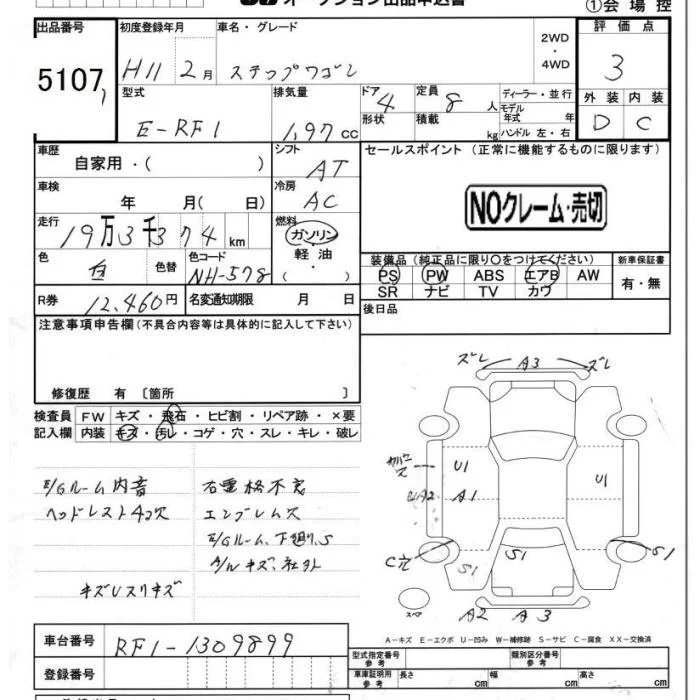 オークション出品申込書 ①会場控
出品番号 初度登録年月 車名・グレード 2WD・4WD 評価点
5107 H11 2月 ステップワゴン 3
型式 排気量 ドア 4 定員 8人 ディーラー・並行 外装 内装
E-RF1 1.97cc 形状 積載 kg モデル年式 年 ハンドル 左・右 D C
車歴 自家用・( ) シフト AT セールスポイント (正常に機能するものに限ります)
車検 年 月( 日) 冷房 AC NOクレーム・売切
走行 19万3千374km 燃料 ガソリン・軽油・( )
色 白 色替 色コード NH-578 装備品 (純正品に限り○をつけてください) 新車保証書
PS PW ABS エアB AW 有・無
SR ナビ TV カワ
R券 12,460円 名変通知期限 月 日 後日品
注意事項申告欄(不具合内容等は具体的に記入して下さい)
修復歴 有 〔箇所 〕
検査員記入欄 FW キズ・飛石・ヒビ割・リペア跡・×要
内装 キズ・汚レ・コゲ・穴・スレ・キレ・破レ
E/Gルーム内音 右電格不良
ヘッドレスト4コ欠 エンブレム欠
E/Gルーム、下廻りS
A/Wキズ、社外
キズUスリキズ
ズレ A3 ズレ
U1 U1
A2 A1
C穴 S1 S1 S1
スペア A2 A3
A-キズ E-エクボ U-凹み W-補修跡 S-サビ C-腐食 XX-交換済
車台番号 RF1-1309899
型式指定番号 参考 類別区分番号 参考
登録番号 車庫証明用 参考 長さ cm 幅 cm 高さ cm